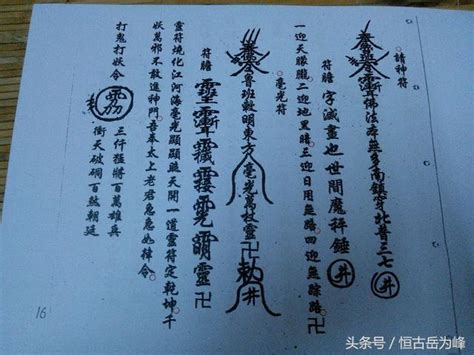 請神符
佛法本無多南鎮寧北普三七
井
符膽 字滅畫也世間魔秤錘 井
一迎天朦朧。二迎地黑暗三迎日月無路。四迎無踪路卍
毫光符
魯班敕明東方毫光萬枝靈卍敕井
符膽
靈符燒化江河海毫光顯顯照天開一道靈符定乾坤千
妖萬邪不敢進神門。吾奉太上老君急急如律令。
打鬼打妖令
三仟猛將百萬雄兵
衝天破洞百煞朝廷
16
头条号 / 恒古岳为峰